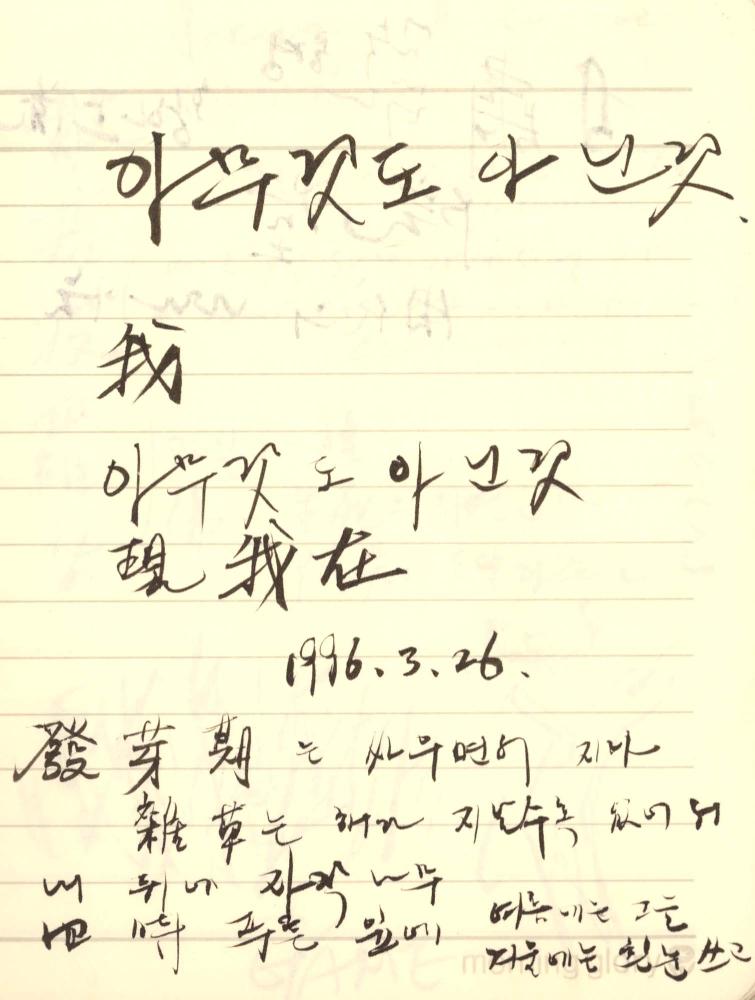 아무것도 아닌것.
我
아무것도 아닌것
現 我 在
1996. 3. 26.
發 芽 期 는 싸우면서 지나
雜 草는 해가 지날수록 없어져
내 뒤에 자작나무
四 時 푸른 잎에
여름에는 그늘
겨울에는 흰눈 쓰고
morning glory